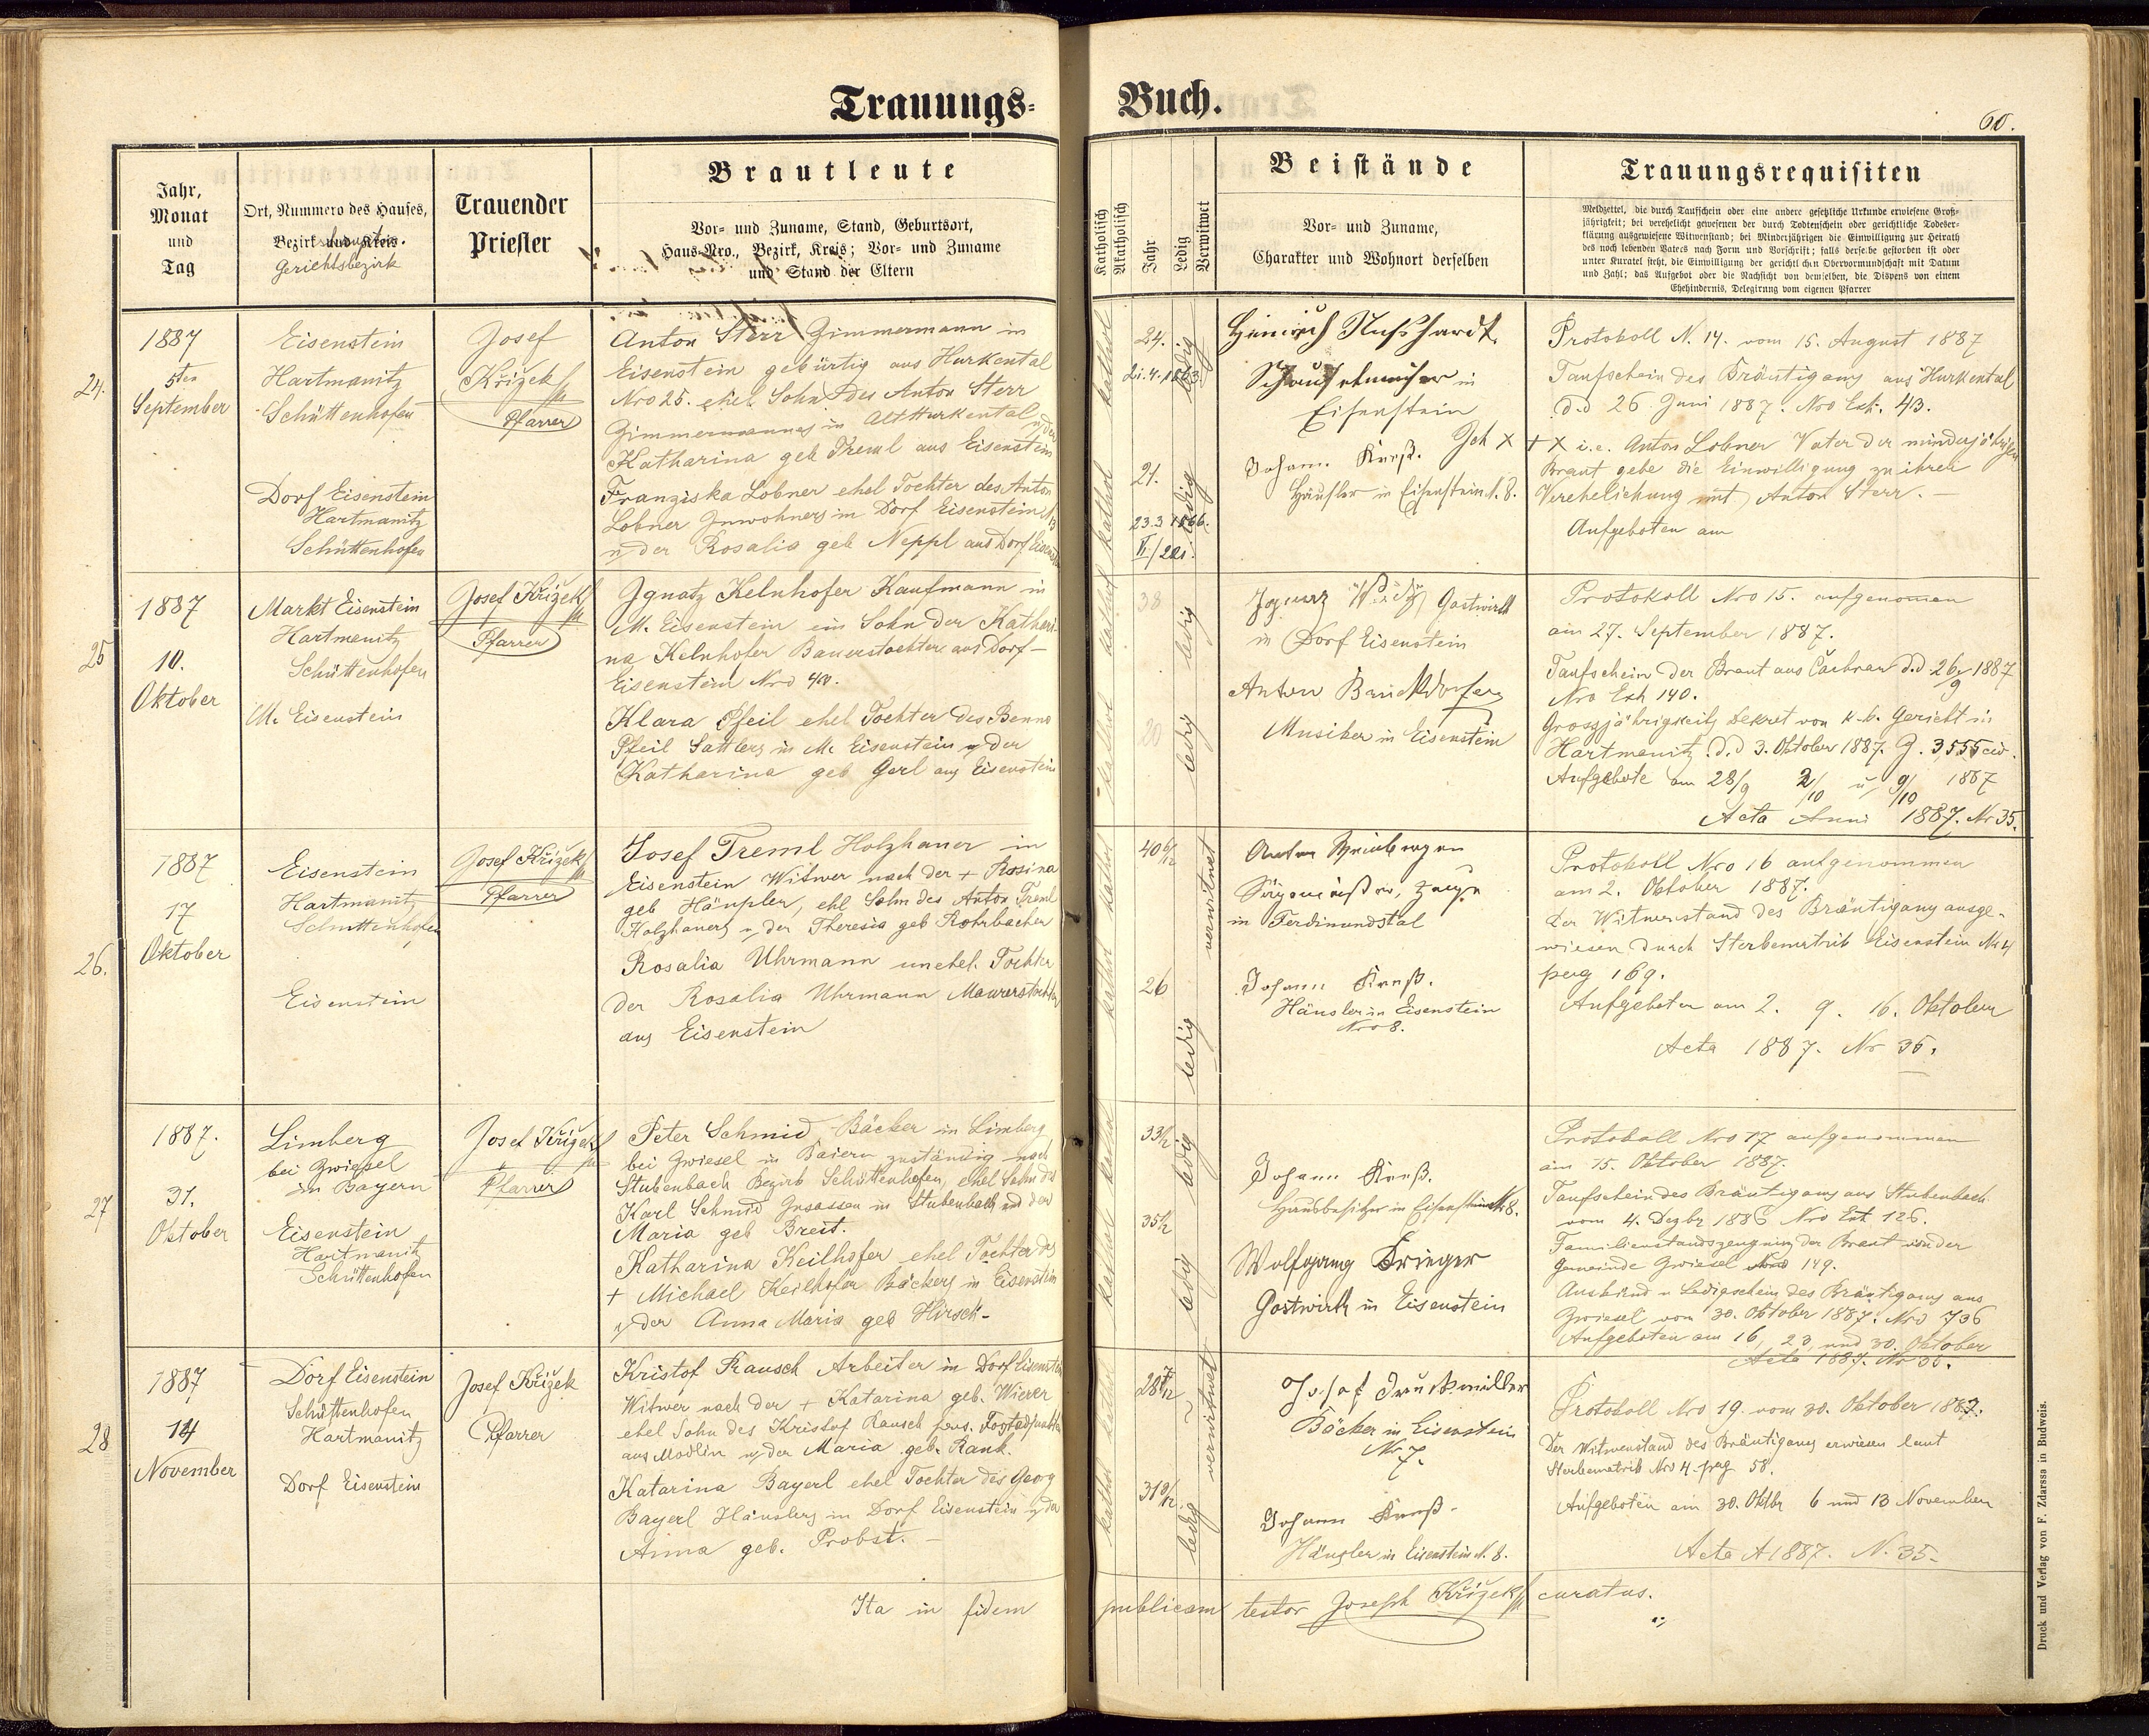 Trauungs-
Buch.
60.
Jahr,
Monat
und
Tag
Ort, Nummero des Hauses,
Bezirk und Kreis.
Gerichtsbezirk
Trauender
Priester
Brautleute
Vor- und Zuname, Stand, Geburtsort,
Haus-Nro., Bezirk, Kreis; Vor- und Zuname
und Stand der Eltern
Katholisch
Akatholisch
Jahr
Ledig
Verwitwet
Beistände
Vor- und Zuname,
Charakter und Wohnort derselben
Trauungsrequisiten
Meldzettel, die durch Taufschein oder eine andere gesetzliche Urkunde erwiesene Groß-
jährigkeit; bei verehelicht gewesenen der durch Todtenschein oder gerichtliche Todeser-
klärung ausgewiesene Witwenstand; bei Minderjährigen die Einwilligung zur Heirath
des noch lebenden Vaters nach Form und Vorschrift; falls derselbe gestorben ist oder
unter Kuratel steht, die Einwilligung der gerichtlichen Obervormundschaft mit Datum
und Zahl; das Aufgebot oder die Nachsicht von demselben, die Dispens von einem
Ehehindernis, Delegirung vom eigenen Pfarrer
24.
1887
5ten
September
Eisenstein
Hartmanitz
Schüttenhofen
Dorf Eisenstein
Hartmanitz
Schüttenhofen
Josef
Křižek
Pfarrer
Anton Sterr Zimmermann in
Eisenstein gebürtig aus Hurkental
Nro 25. ehel. Sohn des Anton Sterr
Zimmermannes in Althurkental u. der
Katharina geb Treml aus Eisenstein
Franziska Lobner ehel Tochter des Anton
Lobner Inwohners in Dorf Eisenstein
u. der Rosalia geb Neppl aus Dorf Eisenstein
kathol
24.
21.4.1863.
ledig
kathol
21.
23.3 1866.
ledig
Heinrich Nußhardt.
in
Eisenstein
Johann Kreß.
Häusler in Eisenstein N. 8.
Protokoll N. 14. vom 15. August 1887
Taufschein des Bräutigams aus Hurkental
d.d 26 Juni 1887. Nro Exh. 43.
Ich X + X i.e. Anton Lobner Vater der minderjährigen
Braut gebe die Einwilligung zu ihrer
Verehelichung mit Anton Sterr. -
Aufgeboten am
25
1887
10.
Oktober
Markt Eisenstein
Hartmanitz
Schüttenhofen
M. Eisenstein
Josef Křižek
Pfarrer
Ignatz Kelnhofer Kaufmann in
M. Eisenstein ein Sohn der Kathari-
na Kelnhofer Bauerstochter aus Dorf-
Eisenstein Nro 40.
Klara Pfeil ehel Tochter des Benno
Pfeil Sattlers in M. Eisenstein u. der
Katharina geb Gerl aus Eisenstein
kathol
38
ledig
kathol
20
ledig
Gastwirth
in Dorf Eisenstein
Anton Bruckdorfer
Musiker in Eisenstein
Protokoll Nro 15. aufgenomen
am 27. September 1887.
Taufschein der Braut aus d.d 26/9 1887
Nro Exh 140.
Grossjährigkeits Dekret von k.b. Gericht in
Hartmanitz d.d 3. Oktober 1887. Z. 3,555 civ.
Aufgebote am 28/9 2/10 u. 9/10 1887
Acta Anni 1887. Nr 35.
26.
1887
17
Oktober
Eisenstein
Hartmanitz
Schüttenhofen
Eisenstein
Josef Křižek
Pfarrer
Josef Treml Holzhauer in
Eisenstein Witwer nach der + Rosina
geb Häupler, ehl Sohn des Anton Treml
Holzhauers u. der Theresia geb Rohrbacher
Rosalia Uhrmann unehel. Tochter
der Rosalia Uhrmann Maurerstochter
aus Eisenstein
kathol
40 6/12
verwitwet
kathol
26
ledig
Zeuge
in Ferdinandstal
Johann Kreß.
Häusler in Eisenstein
Nro 8.
Protokoll Nro 16 aufgenommen
am 2. Oktober 1887.
Der Witwenstand des Bräutigams ausge-
wiesen durch Sterbematrik Eisenstein Nro 4
pag 169.
Aufgeboten am 2. 9. 16. Oktober
Acta 1887. Nr 35.
27
1887.
31.
Oktober
Limberg
bei Zwiesel
in Bayern
Eisenstein
Hartmanitz
Schüttenhofen
Josef Křižek
Pfarrer
Peter Schmid Bäcker in Limberg
bei Zwiesel in Baiern zuständig nach
Stubenbach Bezirk Schüttenhofen, ehel Sohn des
Karl Schmid Insassen in Stubenbach und der
Maria geb Breit.
Katharina Keilhofer ehel Tochter des
+ Michael Keilhofer Bäckers in Eisenstein
u. der Anna Maria geb Hirsch-
kathol
33½
ledig
kathol
35½
ledig
Johann Kreß.
Hausbesitzer in Eisenstein N. 8.
Wolfgang Krieger
Gastwirth in Eisenstein
Protokoll Nro 17 aufgenommen
am 15. Oktober 1887.
Taufschein des Bräutigams aus Stubenbach
vom 4. Dezbr 1886 Nro Ext 126.
Familienstandszeugniss der Braut von der
Gemeinde Zwiesel Nro 149.
u Ledigschein des Bräutigams aus
Zwiesel vom 30. Oktober 1887. Nro 736
Aufgeboten am 16, 23, und 30. Oktober
Acta 1887. Nr 35.
28
1887
14
November
Dorf Eisenstein
Schüttenhofen
Hartmanitz
Dorf Eisenstein
Josef Křižek
Pfarrer
Kristof Rausch Arbeiter in Dorf Eisenstein
Witwer nach der + Katarina geb. Wierer
ehel Sohn des Kristof Rausch pens.
aus Modlin u. der Maria geb. Rank.
Katarina Bayerl ehel Tochter des Georg
Bayerl Häuslers in Dorf Eisenstein u. der
Anna geb. Probst. -
kathol
28 7/12
verwitwet
kathol
31 9/12
ledig
Josef Druckmüller
Bäcker in Eisenstein
Nr 7.
Johann Kreß-
Häusler in Eisenstein N. 8.
Protokoll Nro 19 vom 30. Oktober 1887.
Der Witwenstand des Bräutigams erwiesen laut
Sterbematrik Nro 4. pag 58.
Aufgeboten am 30. Oktbr 6 und 13 November
Acta A 1887. N. 35-
Ita in fidem publicam testor Joseph Křižek curatus.
Druck und Verlag von F. Zdarssa in Budweis.